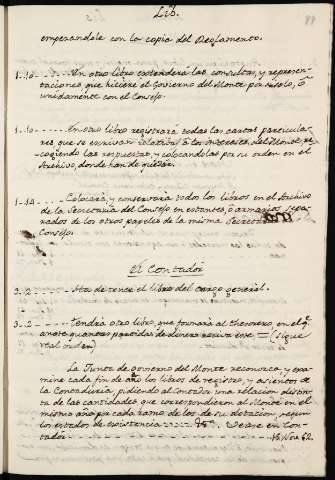 Lib.
empezandole con la copia del Reglamento.
1..10 En otro libro extenderá las consultas, y represen-
taciones que hiciere el Govierno del Monte por si solo, ó
unidamente con el Consejo.
En otro libro registrará todas las cartas particula-
res que se escrivan relativas á los intereses del Monte, re-
cogiendo las respuestas y colocandolas por su orden en el
Archivo donde han de quedar.
Colocará, y conservará todo los libros en el Archivo
de la Secretaría del Consejo en estantes, ó armarios sepa-
rados de los otros papeles de la misma Secretaría
Consejo.
El Contador
2..2 Ha de tener el libro del cargo general.
3..2 Tendrá otro libro, que formará al thesorero en el q.
asiente quantas partidas de dinero reciva este = (sigue
real orden)
La Junta de govierno del Monte reconozca, y exa-
mine cada fin de año los libros de registro, y asientos de
la Contaduría, pidiendo al Contador una relacion distin-
ta de las cantidades que correspondieron al Monte en el
mismo año por cada ramo de los de su dotacion, segun
los estados de existencia Vease en Con-
tador Nota 62.